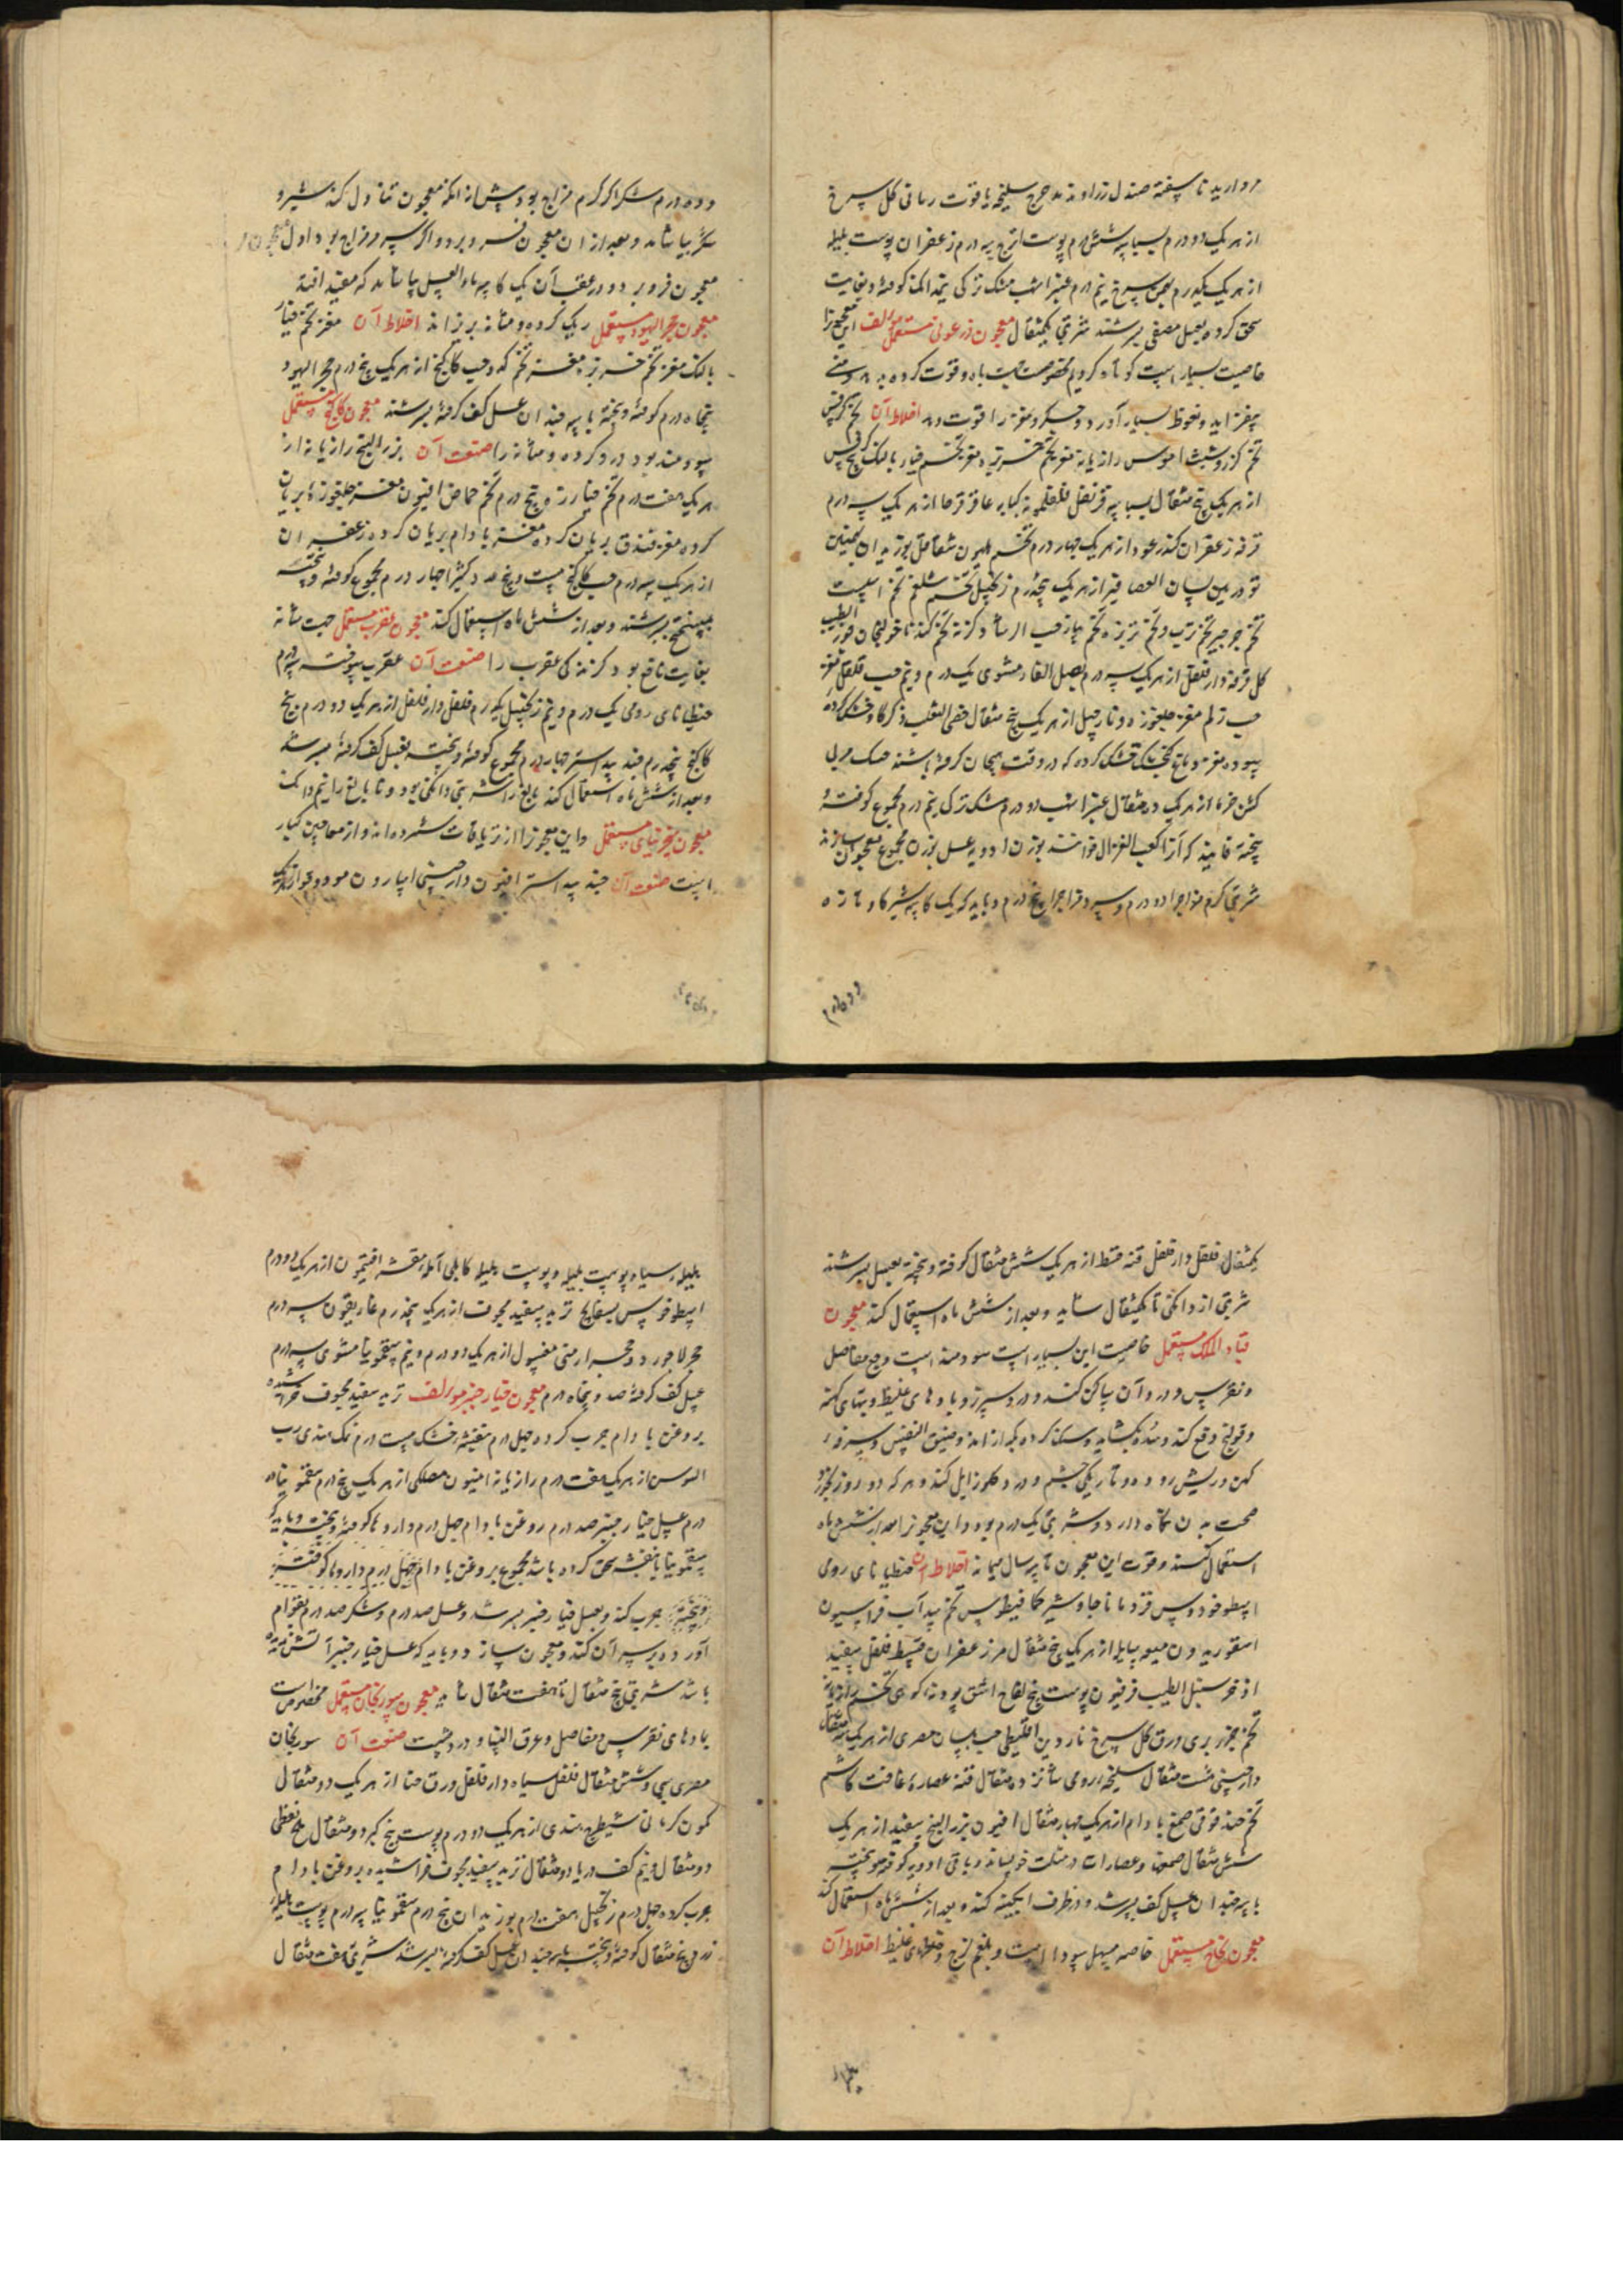 مروارید نا سفته صندل زراوند مدحرج سلیخه یاقوت رمانی کل سرخ
از هر یک دو درم بسباسه شش درم پوست اترج سه درم زعفران پوست بلیله
از هر یک یکدرم بهمن سرخ نیم درم عنبر اشهب مشک ترکی نیمدانک کوفته و بغایت
سحق کرده بعسل مصفی بسرشند شربتی یکمثقال معجون فرعونی مستعمل مولف این معجونرا
خاصیت بسیار است کوتاه کردیم مخصوصست باه و قوت کرده و منی
بیفزاید و نعوظ بسیار آورد و جکر و مغز را قوت دهد اخلاط آن تخم کرفس
تخم کزر و شبت رازیانه مغز تخم خربزه مغز تخم خیار بالنک
از هر یک پنج مثقال بسباسه قرنفل فلفلمویه کبابه عاقرقرحا از هر یک سه درم
قرفه زعفران کندر عود از هر یک چهار درم تخم هلیون شقاقل بوزیدان بهمنین
تودریین لسان العصافیر از هر یک پنجدرم زنجبیل تخم شلغم تخم اسپست
تخم جرجیر تخم ترب و تخم تربزه تخم پیاز حب الرشاد کزنه تخم کندنا خولنجان قوز الطیب
کل قرفه دارفلفل از هر یک سه درم بصل الفار مشوی یک درم و نیم حب فلفل مغز
حب زلم مغز چلغوزه و نارجیل از هر یک پنج مثقال خصی الثعلب ذکر کاو خشک کرده
سوده مغز دماغ کنجشک خشک کرده که در وقت هیجان کرفته باشند خسک مربی
کشن خرما از هر یک ده مثقال عنبر اشهب دو درم مشک ترکی نیم درم مجموع کوفته و
بیخته فانید که آنرا کعب الغزال خوانند بوزن ادویه عسل بوزن مجموع معجون سازند
شربتی کرم مزاجرا دو درم و سرد مزاجرا پنج درم و باید که یک کاسه شیر کاو تازه
و ده درم
و ده درم شکر اکر کرم مزاج بود پیش از انکه معجون تناول کند شیر و
شکر بیاشامد و بعد از ان معجون فرو برد و اکر سرد مزاج بود اول معجون
معجون فرو برد و در عقب آن یک کاسه ماء العسل بیاشامد که مفید افتد
معجون حجر الیهود مستعمل ریک کرده و مثانه بریزاند اخلاط آن مغز تخم خیار
بالنک مغز تخم خربزه مغز تخم کدو حب کاکنج از هر یک پنج درم حجر الیهود
پنجاه درم کوفته و بیخته با سه چندان عسل کف کرفته بسرشند معجون کاکنج مستعمل
سودمند بود درد کرده و مثانه را صنعت آن بزر البنج رازیانه از
هر یک هفت درم تخم خیارزه پنج درم تخم حماض افیون مغز چلغوزه بریان
کرده مغز فندق بریان کرده مغز بادام بریان کرده زعفران
از هر یک سه درم حب کاکنج بیست و پنج عدد کثیرا چهار درم مجموع کوفته و بیخته
بمیبختج بسرشند و بعد از شش ماه استعمال کنند معجون عقرب مستعمل جهت مثانه
بغایت نافع بود کزندکی عقرب را صنعت آن عقرب سوخته سه درم
جنطیانای رومی یک درم و نیم زنجبیل یکدرم فلفل دارفلفل از هر یک دو درم بیخ
کاکنج پنجدرم جند بیدستر چهار درم مجموع کوفته و بیخته بعسل کف کرفته بسرشند
و بعد از شش ماه استعمال کنند بالغ را شربتی دانکی بود و نا بالغ را نیم دانک
معجون سجزنیای مستعمل و این معجونرا از تریاقات شمرده اند و از معاجین کبار
است صنعت آن جند بیدستر افیون دارچینی اسارون مو دوقو از هر یک
یکمثقال فلفل دارفلفل قنه قسط از هر یک شش مثقال کوفته و بیخته بعسل بسرشند
شربتی از دانکی تا یکمثقال شاید و بعد از شش ماه استعمال کنند معجون
قباد الملک مستعمل خاصیت این بسیار است سودمند است وجع مفاصل
و نقرس و درد آن ساکن کند و درد سپرز و بادهای غلیظ و تبهای کهنه
و قولنج دفع کند و سده بکشاید و سنک کرده بکدازاند و ضیق النفس و سرفه
کهن و ریش روده و تاریکی چشم و درد کلو زایل کند و هر که دو روز بخورد
صحت بدن نکاه دارد و شربتی یک درم بود و این معجونرا بعد از شش ماه
استعمال کنند و قوت این معجون تا سه سال میماند اخلاط آن جنطیانای رومی
اسطوخودوس قردمانا جاوشیر کمافیطوس تخم سداب فراسیون
اسقوریدون میعه سایله از هر یک پنج مثقال مر زعفران قسط فلفل سپید
اذخر سنبل الطیب فرفیون پوست بیخ لفاح اشق پودنه کوهی تخم رازیانه
تخم جزر بری ورق کل سرخ ناردین اقلیطی حب بلسان مصری از هر یک سه مثقال
دارچینی هشت مثقال سلیخه رومی شانزده مثقال قنه عصاره غافت کاشم
تخم حندقوقی صمغ بادام از هر یک چهار مثقال افیون بزر البنج سپید از هر یک
شش مثقال صمغها و عصارات در مثلث خیسانند و باقی ادویه کوفته و بیخته
با سه چندان عسل کف بسرشند و در ظرف ابکینه کنند و بعد از شش ماه استعمال کنند
معجون نجاح مستعمل خاصه مسهل سودا است و بلغم لزج و خلطهای غلیظ اخلاط آن
هلیله سیاه پوست بلیله و پوست هلیله کابلی آمله مقشر افتیمون از هر یک دو درم
اسطوخودس بسفایج تربد سپید مجوف از هر یک پنجدرم غاریقون سه درم
حجر لاجورد و حجر ارمنی مغسول از هر یک دو درم و نیم سقمونیا مشوی سه درم
عسل کف کرفته صد و پنجاه درم معجون خیار چنبر مولف تربد سفید مجوف خراشیده
بروغن بادام چرب کرده چهل درم بنفشه خشک بیست درم نمک هندی رب
السوس از هر یک هفت درم رازیانه انیسون مصطکی از هر یک پنج درم سقمونیا ده
درم عسل خیار چنبر صد درم روغن بادام چهل درم داروها کوفته و بیخته و باید که
سقمونیا با بنفشه سحق کرده باشد مجموع بروغن بادام چهل درم داروها کوفته
و بیخته چرب کند و بعسل خیار چنبر بسرشد و عسل صد درم و شکر صد درم بقوام
آورده بر سر آن کند و معجون سازد و باید که عسل خیار چنبر آتش ندیده
باشد شربتی پنج مثقال تا هفت مثقال شاید معجون سورنجان مستعمل مخصوص است
بادهای نقرس و مفاصل و عرق النسا و درد پشت صنعت آن سورنجان
مصری سی و شش مثقال فلفل سیاه دارفلفل ورق حنا از هر یک دو مثقال
کمون کرمانی شیطرج هندی از هر یک دو درم پوست بیخ کبر دو مثقال ملح نفطی
دو مثقال و نیم کف دریا دو مثقال تربد سپید مجوف خراشیده بروغن بادام
چرب کرده چهل درم زنجبیل هفت درم بوزیدان پنج درم سقمونیا سه درم پوست هلیله
زرد پنج مثقال کوفته و بیخته با سه چندان عسل کف کرفته بسرشند شربتی هفت مثقال